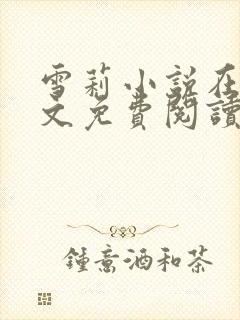 雪莉小說在
文免費閱讀
鍾意酒和茶